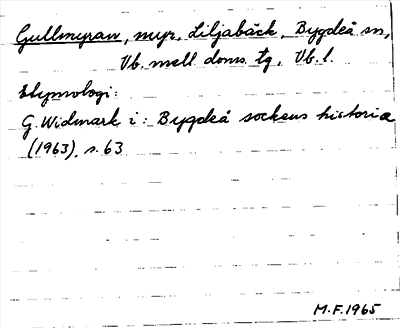 Gullmyran, myr, Liljabäck, Bygdeå sn,
Vb. mell doms. tg, Vb. l.
Etymologi:
G. Widmark i: Bygdeå sockens historia
(1963), s. 63
M.F. 1965